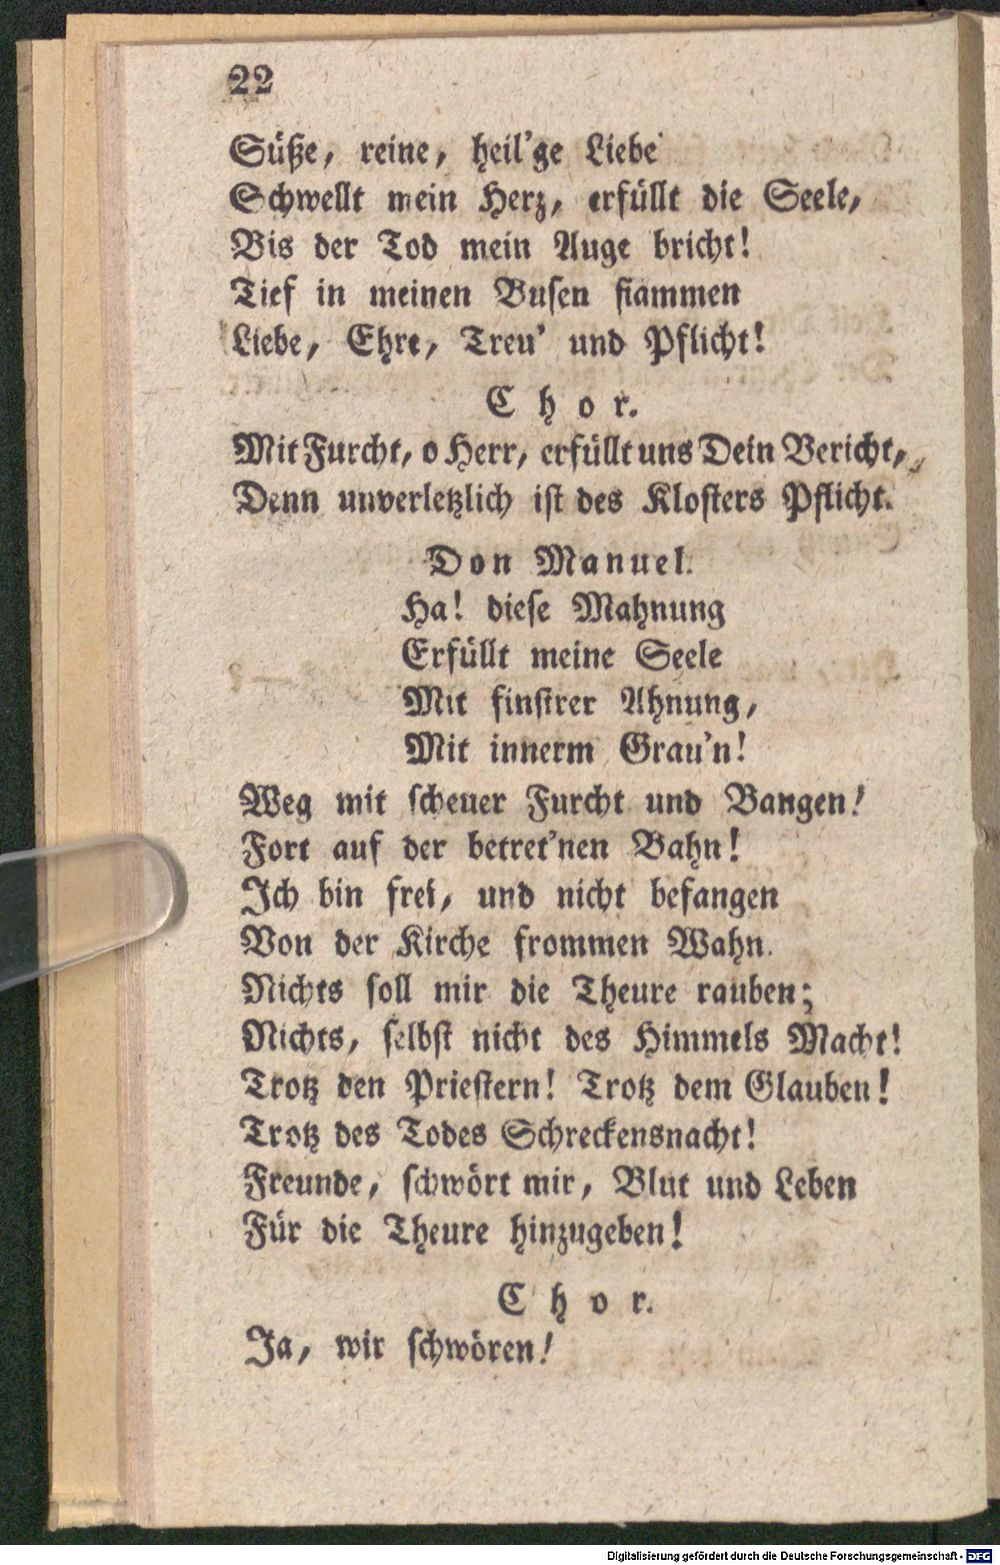 22
Süße, reine, heil'ge Liebe
Schwellt mein Herz, erfüllt die Seele,
Bis der Tod mein Auge bricht!
Tief in meinen Busen flammen
Liebe, Ehre, Treu' und Pflicht!
Chor.
Mit Furcht, o Herr, erfüllt uns Dein Bericht,
Denn unverletzlich ist des Klosters Pflicht.
Don Manuel.
Ha! diese Mahnung
Erfüllt meine Seele
Mit finstrer Ahnung,
Mit innerm Grau'n!
Weg mit scheuer Furcht und Bangen!
Fort auf der betret'nen Bahn!
Ich bin frei, und nicht befangen
Von der Kirche frommen Wahn.
Nichts soll mir die Theure rauben;
Nichts, selbst nicht des Himmels Macht!
Trotz den Priestern! Trotz dem Glauben!
Trotz des Todes Schreckensnacht!
Freunde, schwört mir, Blut und Leben
Für die Theure hinzugeben!
Chor.
Ja, wir schwören!
Digitalisierung gefördert durch die Deutsche Forschungsgemeinschaft - DFG